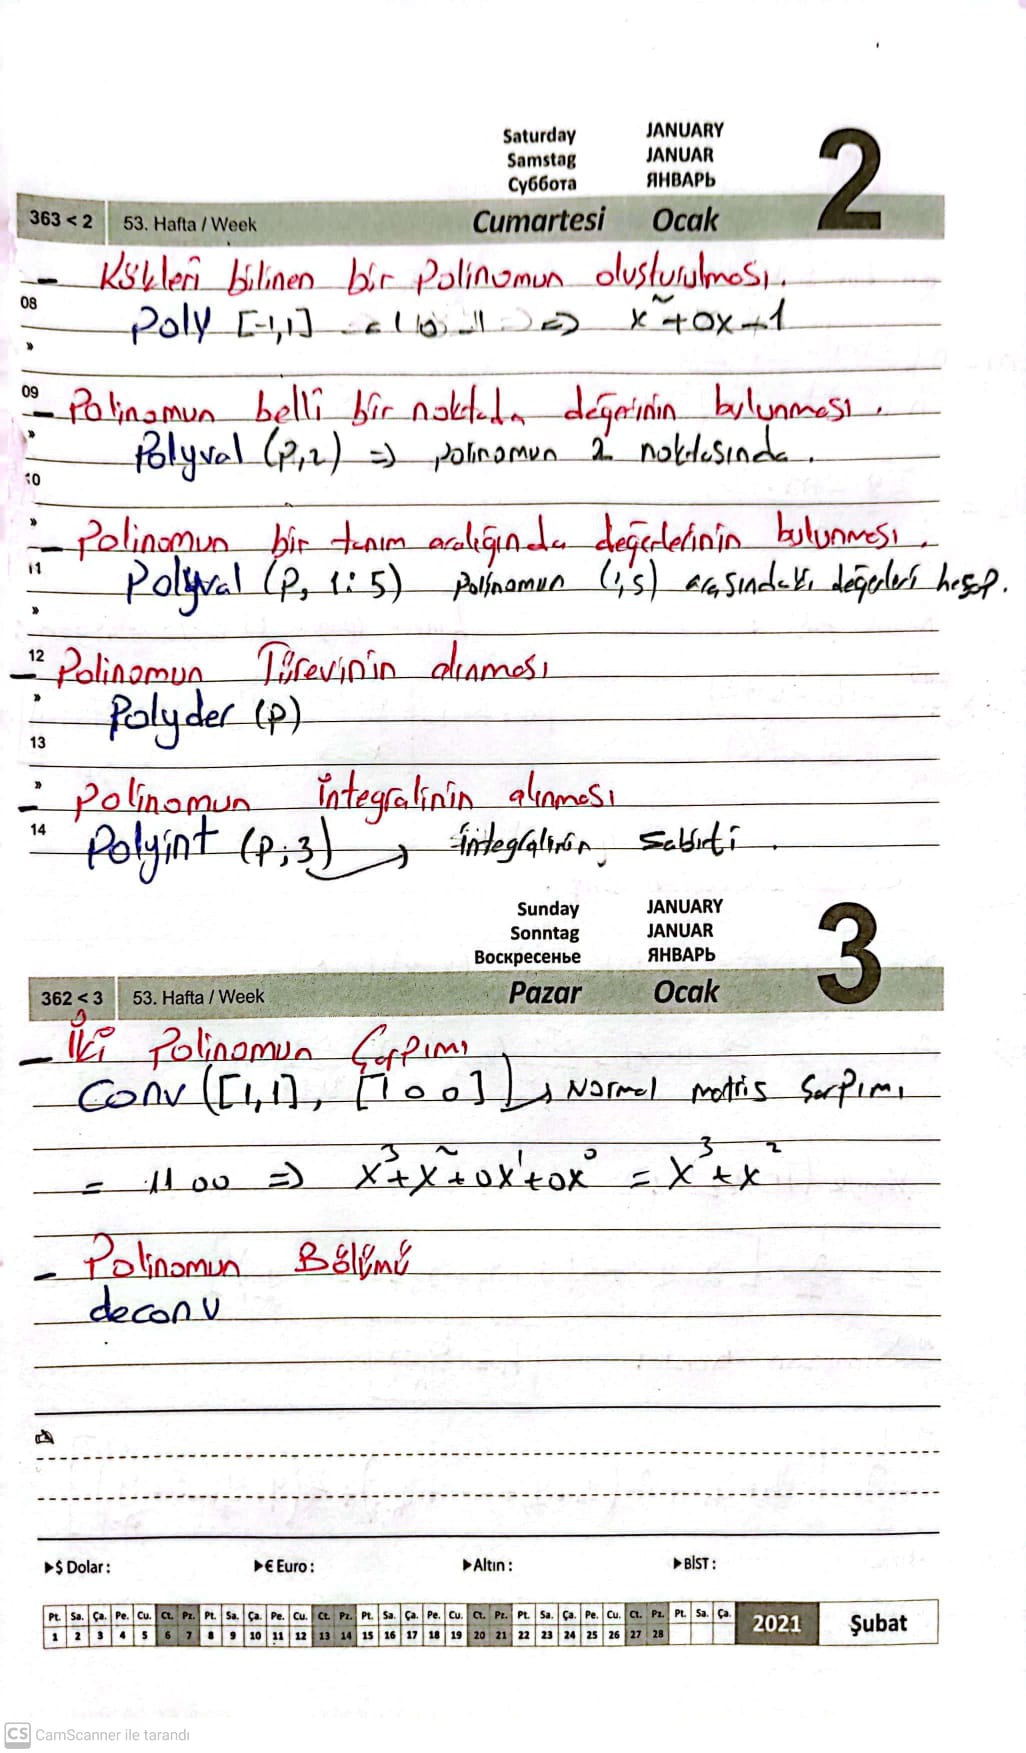 Saturday JANUARY
Samstag JANUAR
Суббота ЯНВАРЬ
2
363 < 2 53. Hafta / Week Cumartesi Ocak
- Kökleri bilinen bir Polinomun oluşturulması.
08
Poly [-1,1] => x² + 0x - 1
»
09
- Polinomun belli bir noktada değerinin bulunması.
»
Polyval (P,2) => polinomun 2 noktasında.
10
»
- Polinomun bir tanım aralığında değerlerinin bulunması.
11
Polyval (P, 1:5) Polinomun (1,5) arasındaki değerleri hesap.
»
12
- Polinomun Türevinin alınması
»
Polyder (P)
13
»
- Polinomun integralinin alınması
14
Polyint (P,3) → integralinin sabiti.
Sunday JANUARY
Sonntag JANUAR
Воскресенье ЯНВАРЬ
3
362 < 3 53. Hafta / Week Pazar Ocak
- İki Polinomun Çarpımı
Conv ([1,1], [1 0 0]) → Normal matris Çarpımı
= 1 1 0 0 => x³+x²+0x¹+0x⁰ = x³+x²
- Polinomun Bölümü
deconv
▶$ Dolar: ▶€ Euro: ▶Altın: ▶BİST:
Pt. Sa. Ça. Pe. Cu. Ct. Pz. Pt. Sa. Ça. Pe. Cu. Ct. Pz. Pt. Sa. Ça. Pe. Cu. Ct. Pz. Pt. Sa. Ça. Pe. Cu. Ct. Pz. Pt. Sa. Ça.
1 2 3 4 5 6 7 8 9 10 11 12 13 14 15 16 17 18 19 20 21 22 23 24 25 26 27 28
2021 Şubat
CS CamScanner ile tarandı